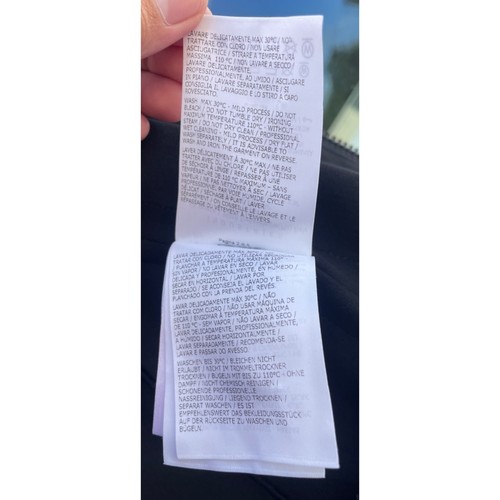 LAVARE DELICATAMENTE MAX 30°C / NON
TRATTARE CON CLORO / NON USARE
ASCIUGATRICE / STIRARE A TEMPERATURA
MASSIMA 110°C / NON LAVARE A SECCO /
LAVARE DELICATAMENTE,
PROFESSIONALMENTE, AD UMIDO / ASCIUGARE
IN PIANO / LAVARE SEPARATAMENTE / SI
CONSIGLIA IL LAVAGGIO E LO STIRO A CAPO
ROVESCIATO.
WASH MAX 30°C - MILD PROCESS / DO NOT
BLEACH / DO NOT TUMBLE DRY / IRONING
MAXIMUM TEMPERATURE 110°C - WITHOUT
STEAM / DO NOT DRY CLEAN / PROFESSIONAL
WET CLEANING - MILD PROCESS / DRY FLAT /
WASH SEPARATELY / IT IS ADVISABLE TO
WASH AND IRON THE GARMENT ON REVERSE.
LAVER DELICATEMENT À 30°C MAX / NE PAS
TRAITER AVEC DU CHLORE / NE PAS UTILISER
DE SÈCHOIR À LINGE / REPASSER À UNE
TEMPÈRATURE DE 110 °C MAXIMUM – SANS
VAPEUR / NE PAS NETTOYER À SEC / LAVAGE
PROFESSIONNEL PAR VOIE HUMIDE, CYCLE
DÈLICAT / SÈCHAGE À PLAT / LAVER
SÈPARÈMENT / ON CONSEILLE LE LAVAGE ET LE
REPASSAGE DU VÊTEMENT À L'ENVERS.
LAVAR DELICADAMENTE MÁX 30°C / NO
TRATAR CON CLORO / NO UTILIZAR
/ PLANCHAR A TEMPERATURA MÁXIMA 110°
SIN VAPOR / NO LAVAR EN SECO / LAVAR
DELICADA Y PROFESIONALMENTE, EN HÚMEDO /
SECAR EN HORIZONTAL / LAVAR POR
SEPARADO / SE ACONSEJA EL LAVADO Y EL
PLANCHADO CON LA PRENDA DEL REVÉS.
LAVAR DELICADAMENTE MÁX 30°C / NÃO
TRATAR COM CLORO / NÃO USAR MÁQUINA DE
SECAR / ENGOMAR À TEMPERATURA MÁXIMA
DE 110 °C - SEM VAPOR / NÃO LAVAR A SECO /
LAVAR DELICADAMENTE, PROFISSIONALMENTE,
A HÚMIDO / SECAR HORIZONTALMENTE /
LAVAR SEPARADAMENTE / RECOMENDA-SE
LAVAR E PASSAR DO AVESSO.
WASCHEN BIS 30°C / BLEICHEN NICHT
ERLAUBT / NICHT IM TROMMELTROCKNER
TROCKNEN / BÜGELN MIT BIS ZU 110°C - OHNE
DAMPF / NICHT CHEMISCH REINIGEN /
SCHONENDE PROFESSIONELLE
NASSREINIGUNG / LIEGEND TROCKNEN /
SEPARAT WASCHEN / ES IST
EMPFEHLENSWERT DAS BEKLEIDUNGSSTÜCK
AUF DER RÜCKSEITE ZU WASCHEN UND
BÜGELN.